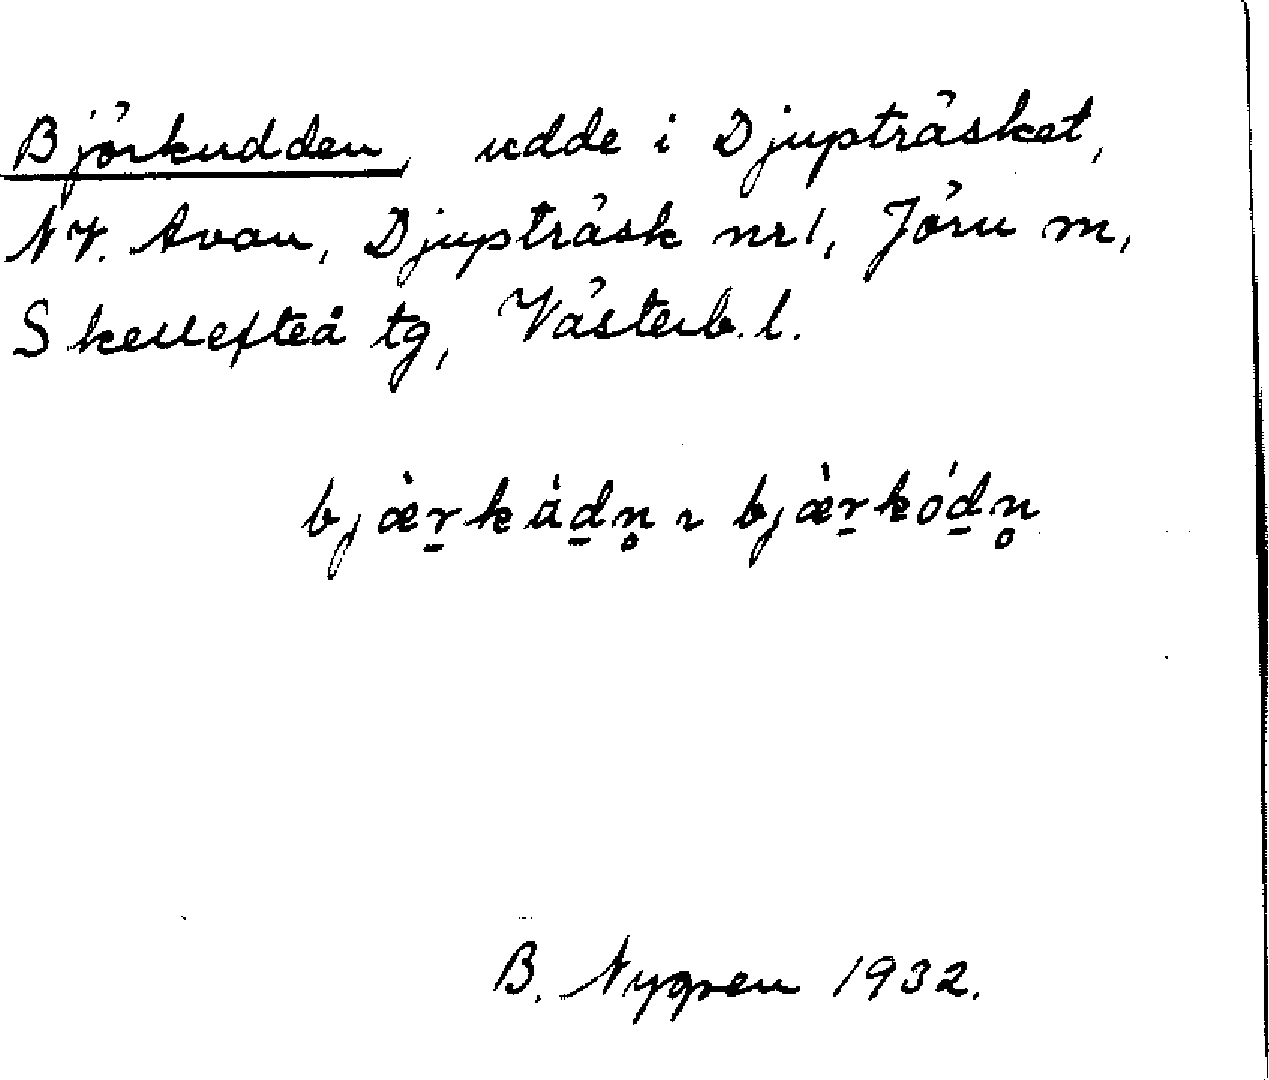 Björkudden, udde i Djupträsket,
NV. Avan, Djupträsk nr 1, Jörn m,
Skellefteå tg, Västerb. l.
bjæ̀r̠kåd̠n̥ ~ bjæ̀r̠kód̠n̥
B. Nygren 1932.